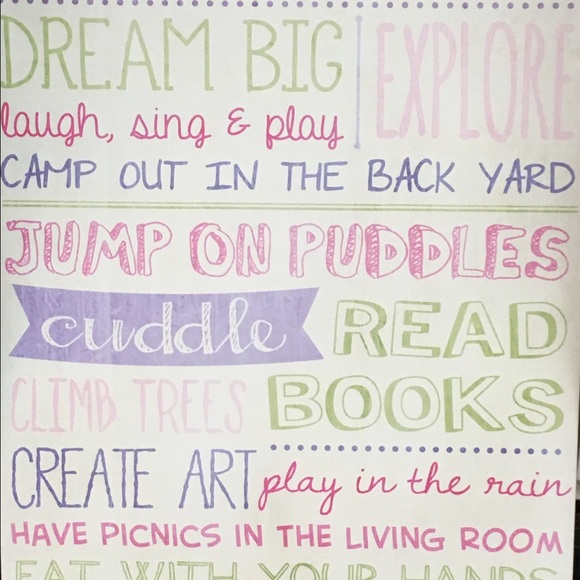 DREAM BIG
EXPLORE
laugh, sing & play
CAMP OUT IN THE BACK YARD
JUMP ON PUDDLES
cuddle
READ
BOOKS
CLIMB TREES
CREATE ART
play in the rain
HAVE PICNICS IN THE LIVING ROOM
EAT WITH YOUR HANDS